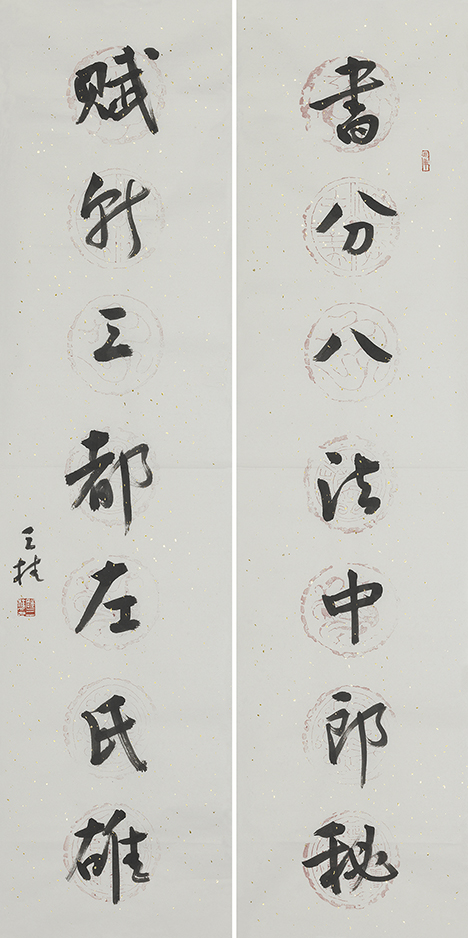 書分八法中郎秘
賦就三都左氏雄